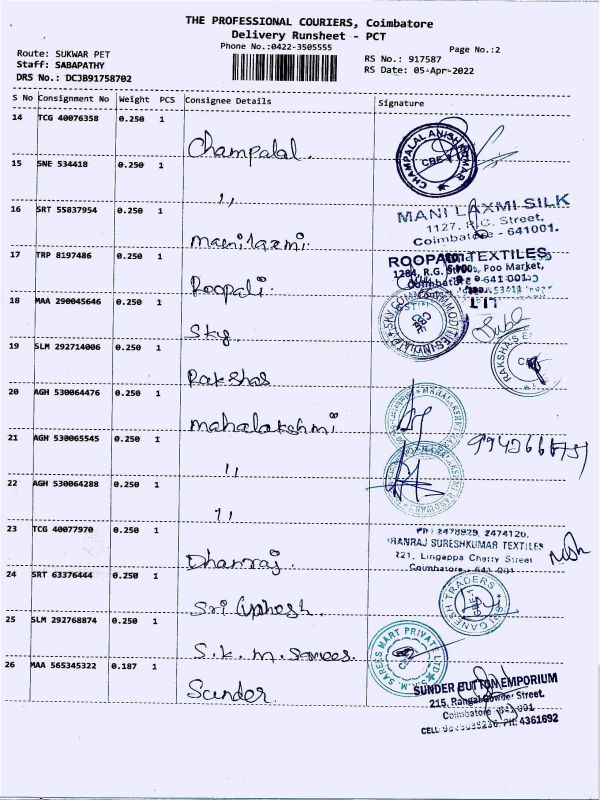 THE PROFESSIONAL COURIERS, Coimbatore
Delivery Runsheet - PCT
Phone No.:0422-3505555
Page No.:2
Route: SUKWAR PET
Staff: SABAPATHY
DRS No.: DCJB91758702
RS No.: 917587
RS Date: 05-Apr-2022
S No Consignment No Weight PCS Consignee Details Signature
14 TCG 40076358 0.250 1 Champalal.
CHAMPALAL ANISH KUMAR
CBE-1
15 SNE 534418 0.250 1 ,,
16 SRT 55837954 0.250 1 Manilaxmi.
MANI LAXMI SILK
1127, R.G. Street,
Coimbatore - 641001.
17 TRP 8197486 0.250 1 Roopali.
ROOPALI TEXTILES
1284, R.G. Street, Poo Market,
Coimbatore - 641 001.
18 MAA 290045646 0.250 1 Sky.
SKY COMMODITIES
19 SLM 292714006 0.250 1 Rakshas
RAKSHA
20 AGH 530064476 0.250 1 Mahalakshmi
MAHALAKSHMI
21 AGH 530065545 0.250 1 ,,
22 AGH 530064288 0.250 1 ,,
23 TCG 40077970 0.250 1 Dhanraj.
PH: 2478929, 2474120.
DHANRAJ SURESHKUMAR TEXTILES
221, Lingappa Chetty Street
Coimbatore - 641 001
24 SRT 63376444 0.250 1 Sri Ganesh.
SRI GANESH TRADERS
CBE-1
25 SLM 292768874 0.250 1 S.k.m. Sarees.
SAREES MART PRIVATE LTD
26 MAA 565345322 0.187 1 Sunder.
SUNDER BUTTON EMPORIUM
215, Rangai Gowder Street.
Coimbatore - 641 001
PH: 4361692